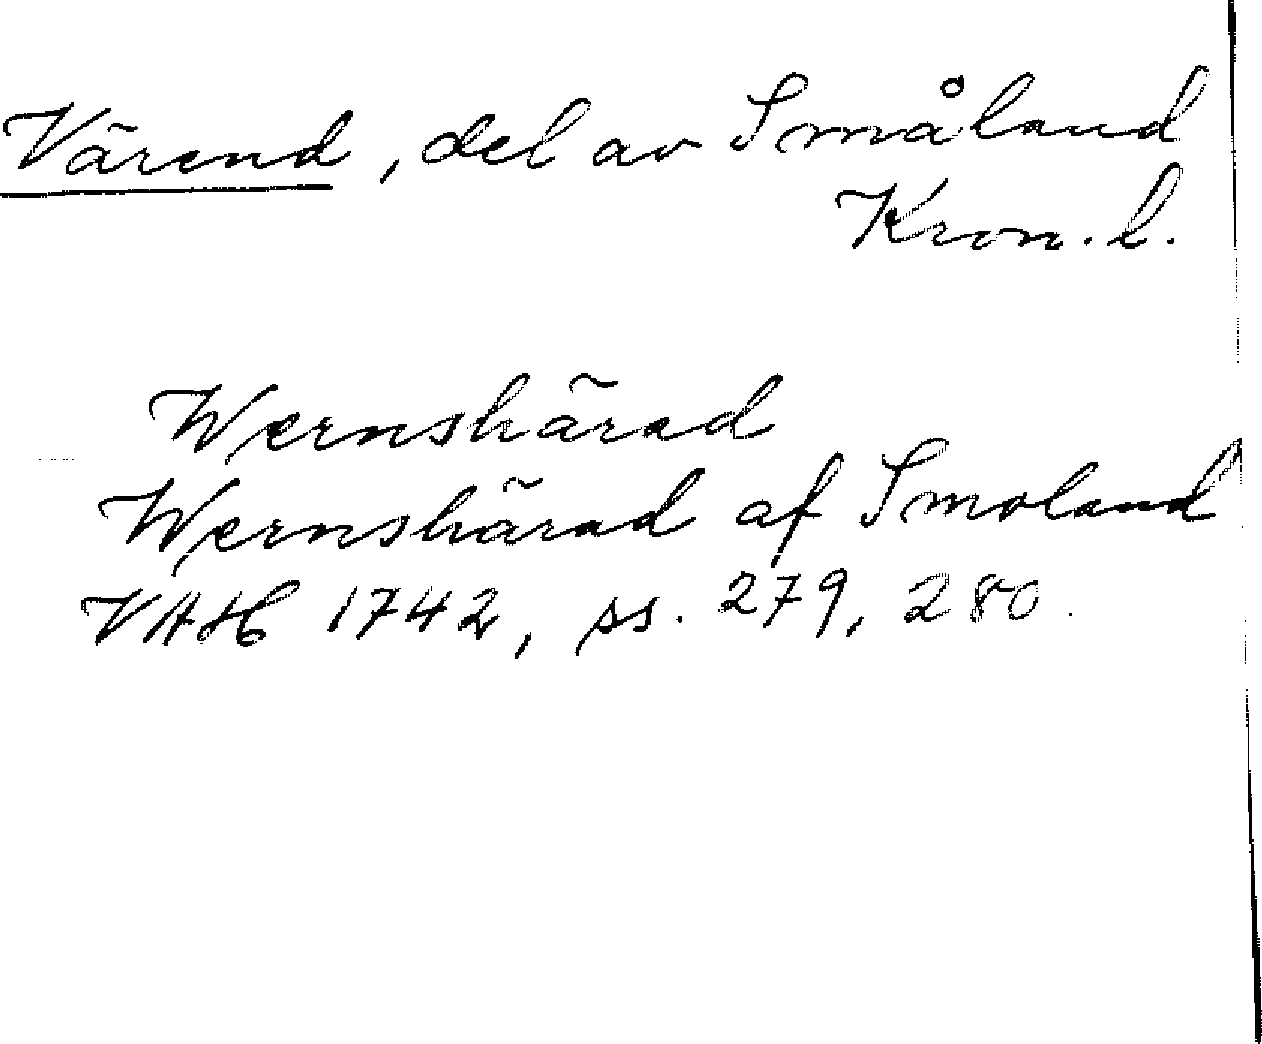 Värend, del av Småland
Kron. l.
Wernshärad
Wernshärad af Smoland
VAH 1742, ss. 279, 280.